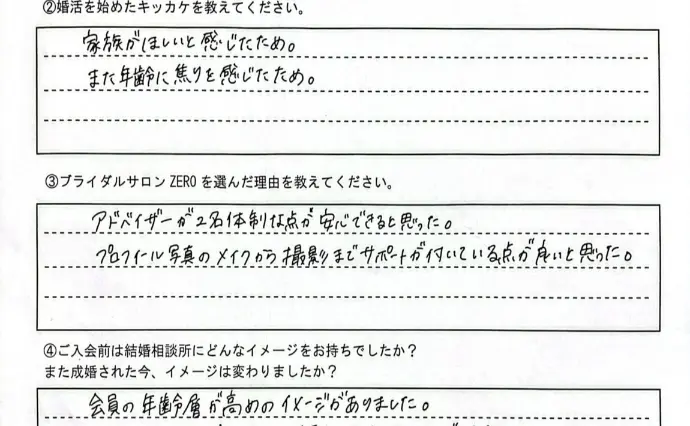 ②婚活を始めたキッカケを教えてください。
家族がほしいと感じたため。
また年齢に焦りを感じたため。
③ブライダルサロン ZERO を選んだ理由を教えてください。
アドバイザーが2名体制な点が安心できると思った。
プロフィール写真のメイクから撮影までサポートが付いている点が良いと思った。
④ご入会前は結婚相談所にどんなイメージをお持ちでしたか？
また成婚された今、イメージは変わりましたか？
会員の年齢層が高めのイメージがありました。